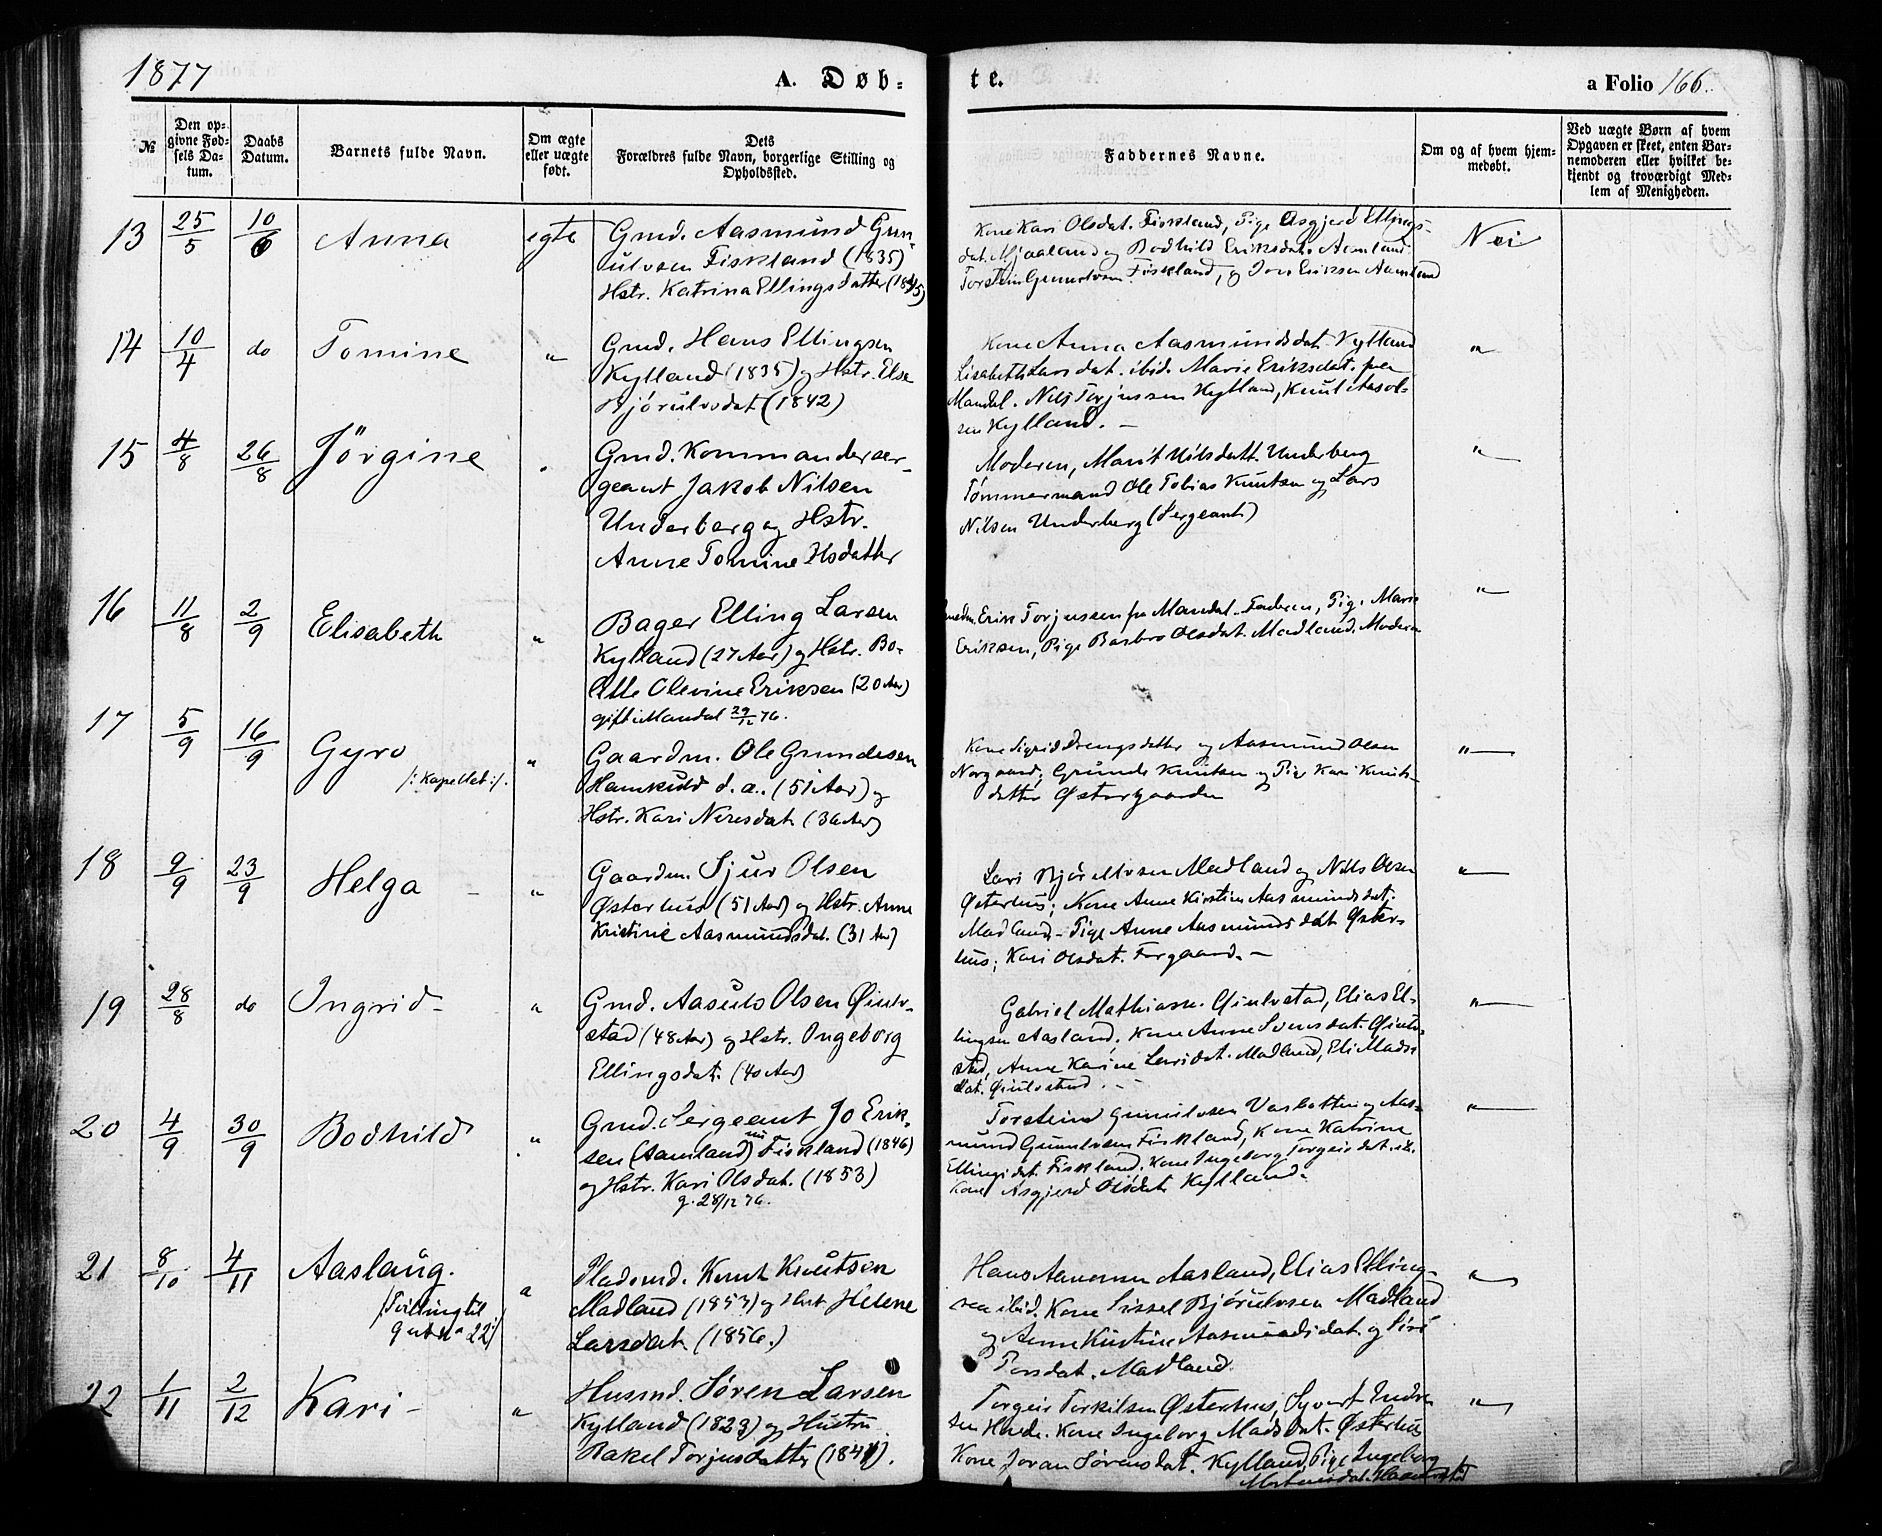 1877
A. Døb-
te.
a Folio 166.
№
Den op-
givne Fød-
sels Da-
tum.
Daabs
Datum.
Barnets fulde Navn.
Om ægte
eller uægte
født.
Dets
Forældres fulde Navn, borgerlige Stilling og
Opholdssted.
Faddernes Navne.
Om og af hvem hjem-
medøbt.
Ved uægte Børn af hvem
Opgaven er skeet, enten Bar-
nemoderen eller hvilket be-
kjendt og troværdigt Med-
lem af Menigheden.
13 25/5 10/6 Anna egte
Gmd. Aasmund Gun-
ulvsen Fiskland (1835)
Hstr. Katrina Ellingsdatter
Kone Kari Olsdat. Fiskland, Pige Asgjerd Ellings-
dat. Mjaaland og Bodhild Eriksdat. Aamland
Torstein Gunulvsen Fiskland, og Jon Eriksen Aamland
Nei
14 10/4 do Tomine "
Gmd. Hans Ellingsen
Kylland (1835) og Hstr. Else
Bjørulvsdat (1842)
Kone Anna Aasmundsdat Kylland
Lisabeth Larsdat. ibid. Marie Eriksdat. fra
Mandal. Nils Torjussen Kylland, Knut Aasul-
sen Kylland. -
"
15 4/8 26/8 Jörgine "
Gmd. Kommanderser-
geant Jakob Nilsen
Underberg og Hstr.
Anne Tomine
Moderen, Marit Nilsdatt. Underberg
Tømmermand Ole Tobias Knutsen og Lars
Nilsen Underberg (Sergeant)
"
16 11/8 2/9 Elisabeth "
Bager Elling Larsen
Kylland (27 Aar) og Hstr. Bo-
lette Olevine Eriksen (20 Aar)
gift i Mandal 29/12 76.
Erik Torjussen fra Mandal. Faderen, Pige Marie
Eriksen, Pige Barbro Olsdat. Madland. Moderen
"
17 5/9 16/9 Gyro "
/: Kapellet :/.
Gaardm. Ole Grundesen
Hamkuld d. a. (51 Aar) og
Hstr. Kari Neresdat. (36 Aar)
Kone Sigrid Drengsdatter og Aasmund Olsen
Norgaard; Grunde Knutsen og Pige Kari Knuts-
datter Østergaarden
"
18 9/9 23/9 Helga "
Gaardm. Sjur Olsen
Østerhus (51 Aar) og Hstr. Anne
Kristine Aasmundsdat. (31 Aar)
Lars Bjørulvsen Madland og Nils Olsen
Østerhus; Kone Anne Kirstine Aasmundsdat.
Madland - Pige Anne Aasmundsdat Øster-
hus; Kari Olsdat. Forgaard. -
"
19 28/8 do Ingrid "
Gmd. Aasulv Olsen Øiulv-
stad (48 Aar) og Hstr. Ingeborg
Ellingsdat. (40 Aar)
Gabriel Mathiassn. Øiulvstad, Elias El-
lingsen Aasland, Kone Anne Svensdat. Øiulv-
stad, Anne Karine Larsdat. Madland, Eli Mads
dat. Øiulvstad. -
"
20 4/9 30/9 Bodhild "
Gmd. Sergeant Jo Erik-
sen (Aamland) nu Fiskland (1846)
og Hstr. Kari Olsdat. (1853)
g. 28/12 76.
Torstein Gunulvsen Vasbotten og Aas-
mund Gunulvsen Fiskland, Kone Katrine
Ellingsdat. Fiskland. Kone Ingeborg Torgeirsdat. ib.
Kone Asgjerd Olsdat. Kylland.
"
21 8/10 4/11 Aaslaug. "
/Tvilling til
22/
Pladsmd. Knut Knutsen
Madland (1853) og Hst. Helene
Larsdat. (1856.)
Hans Aanensen Aasland, Elias Elling-
sen ibid. Kone Sissel Bjørulvsen Madland
og Anne Kirstine Aasmundsdat. og Siri
Torsdat. Madland.
"
22 1/11 2/12 Kari - "
Husmd. Søren Larsen
Kylland (1829) og Hustru
Rakel Torjusdatter (1841).
Torgeir Torkilsen Østerhus, Syvert Endre-
sen Horde. Kone Ingeborg Madsdat. Østerhus
Kone Joran Sørensdat. Kylland, Pige Ingeborg
"